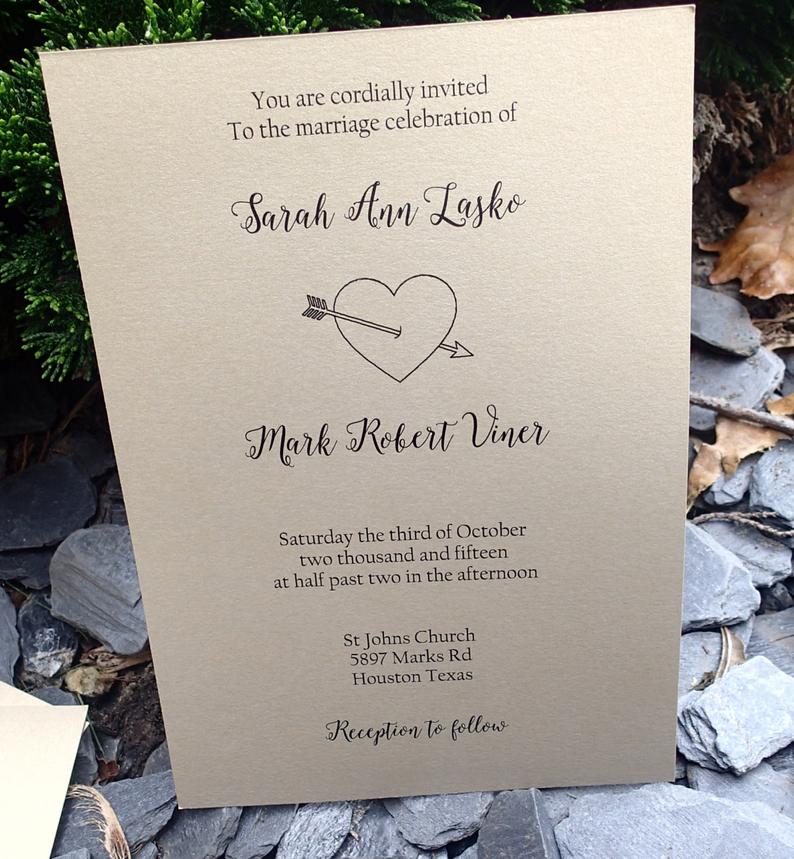 You are cordially invited
To the marriage celebration of
Sarah Ann Lasko
Mark Robert Viner
Saturday the third of October
two thousand and fifteen
at half past two in the afternoon
St Johns Church
5897 Marks Rd
Houston Texas
Reception to follow